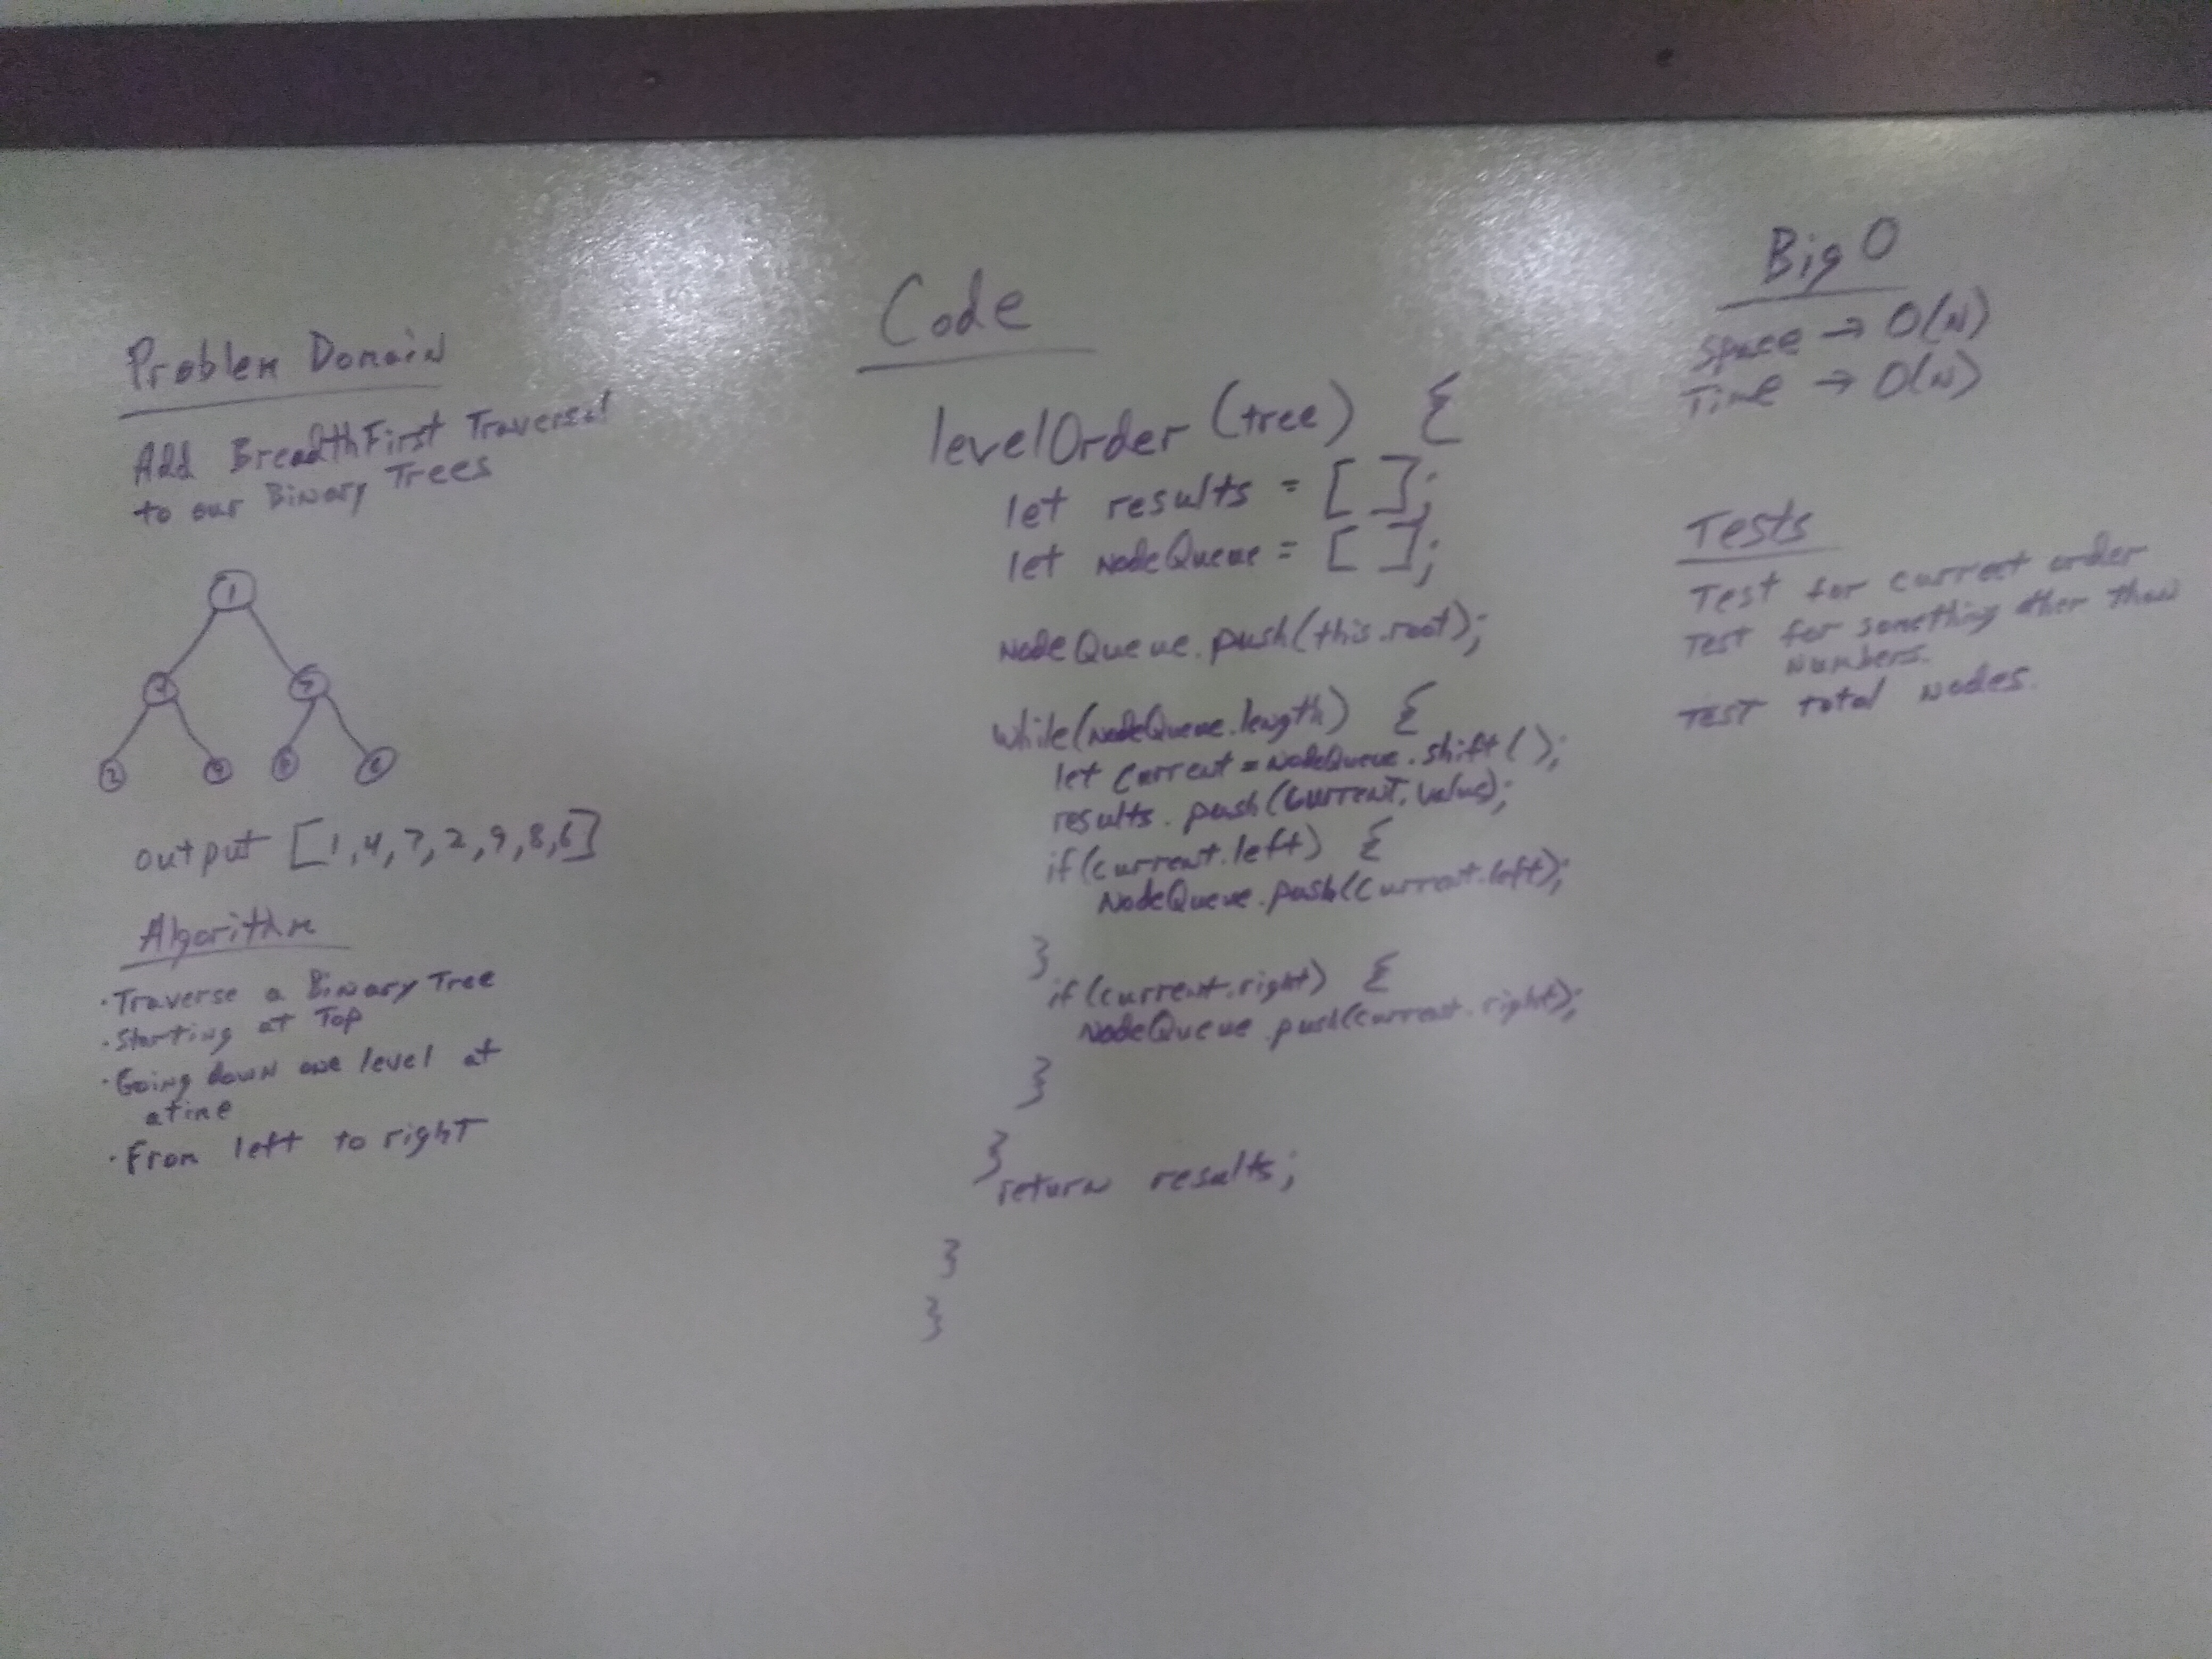 Problem Domain
Add BreadthFirst Traversal
to our Binary Trees
1
4 7
2 9 8 6
output [1,4,7,2,9,8,6]
Algorithm
·Traverse a Binary Tree
·Starting at Top
·Going down one level at
atime
·From left to right
Code
levelOrder (tree) {
let results = [ ];
let NodeQueue = [ ];
NodeQueue.push(this.root);
while(NodeQueue.length) {
let current = NodeQueue.shift();
results.push(current.value);
if(current.left) {
NodeQueue.push(current.left);
}
if(current.right) {
NodeQueue.push(current.right);
}
}
return results;
}
}
Big O
Space → O(N)
Time → O(N)
Tests
Test for currect order
Test for something other than
numbers.
TEST total nodes.